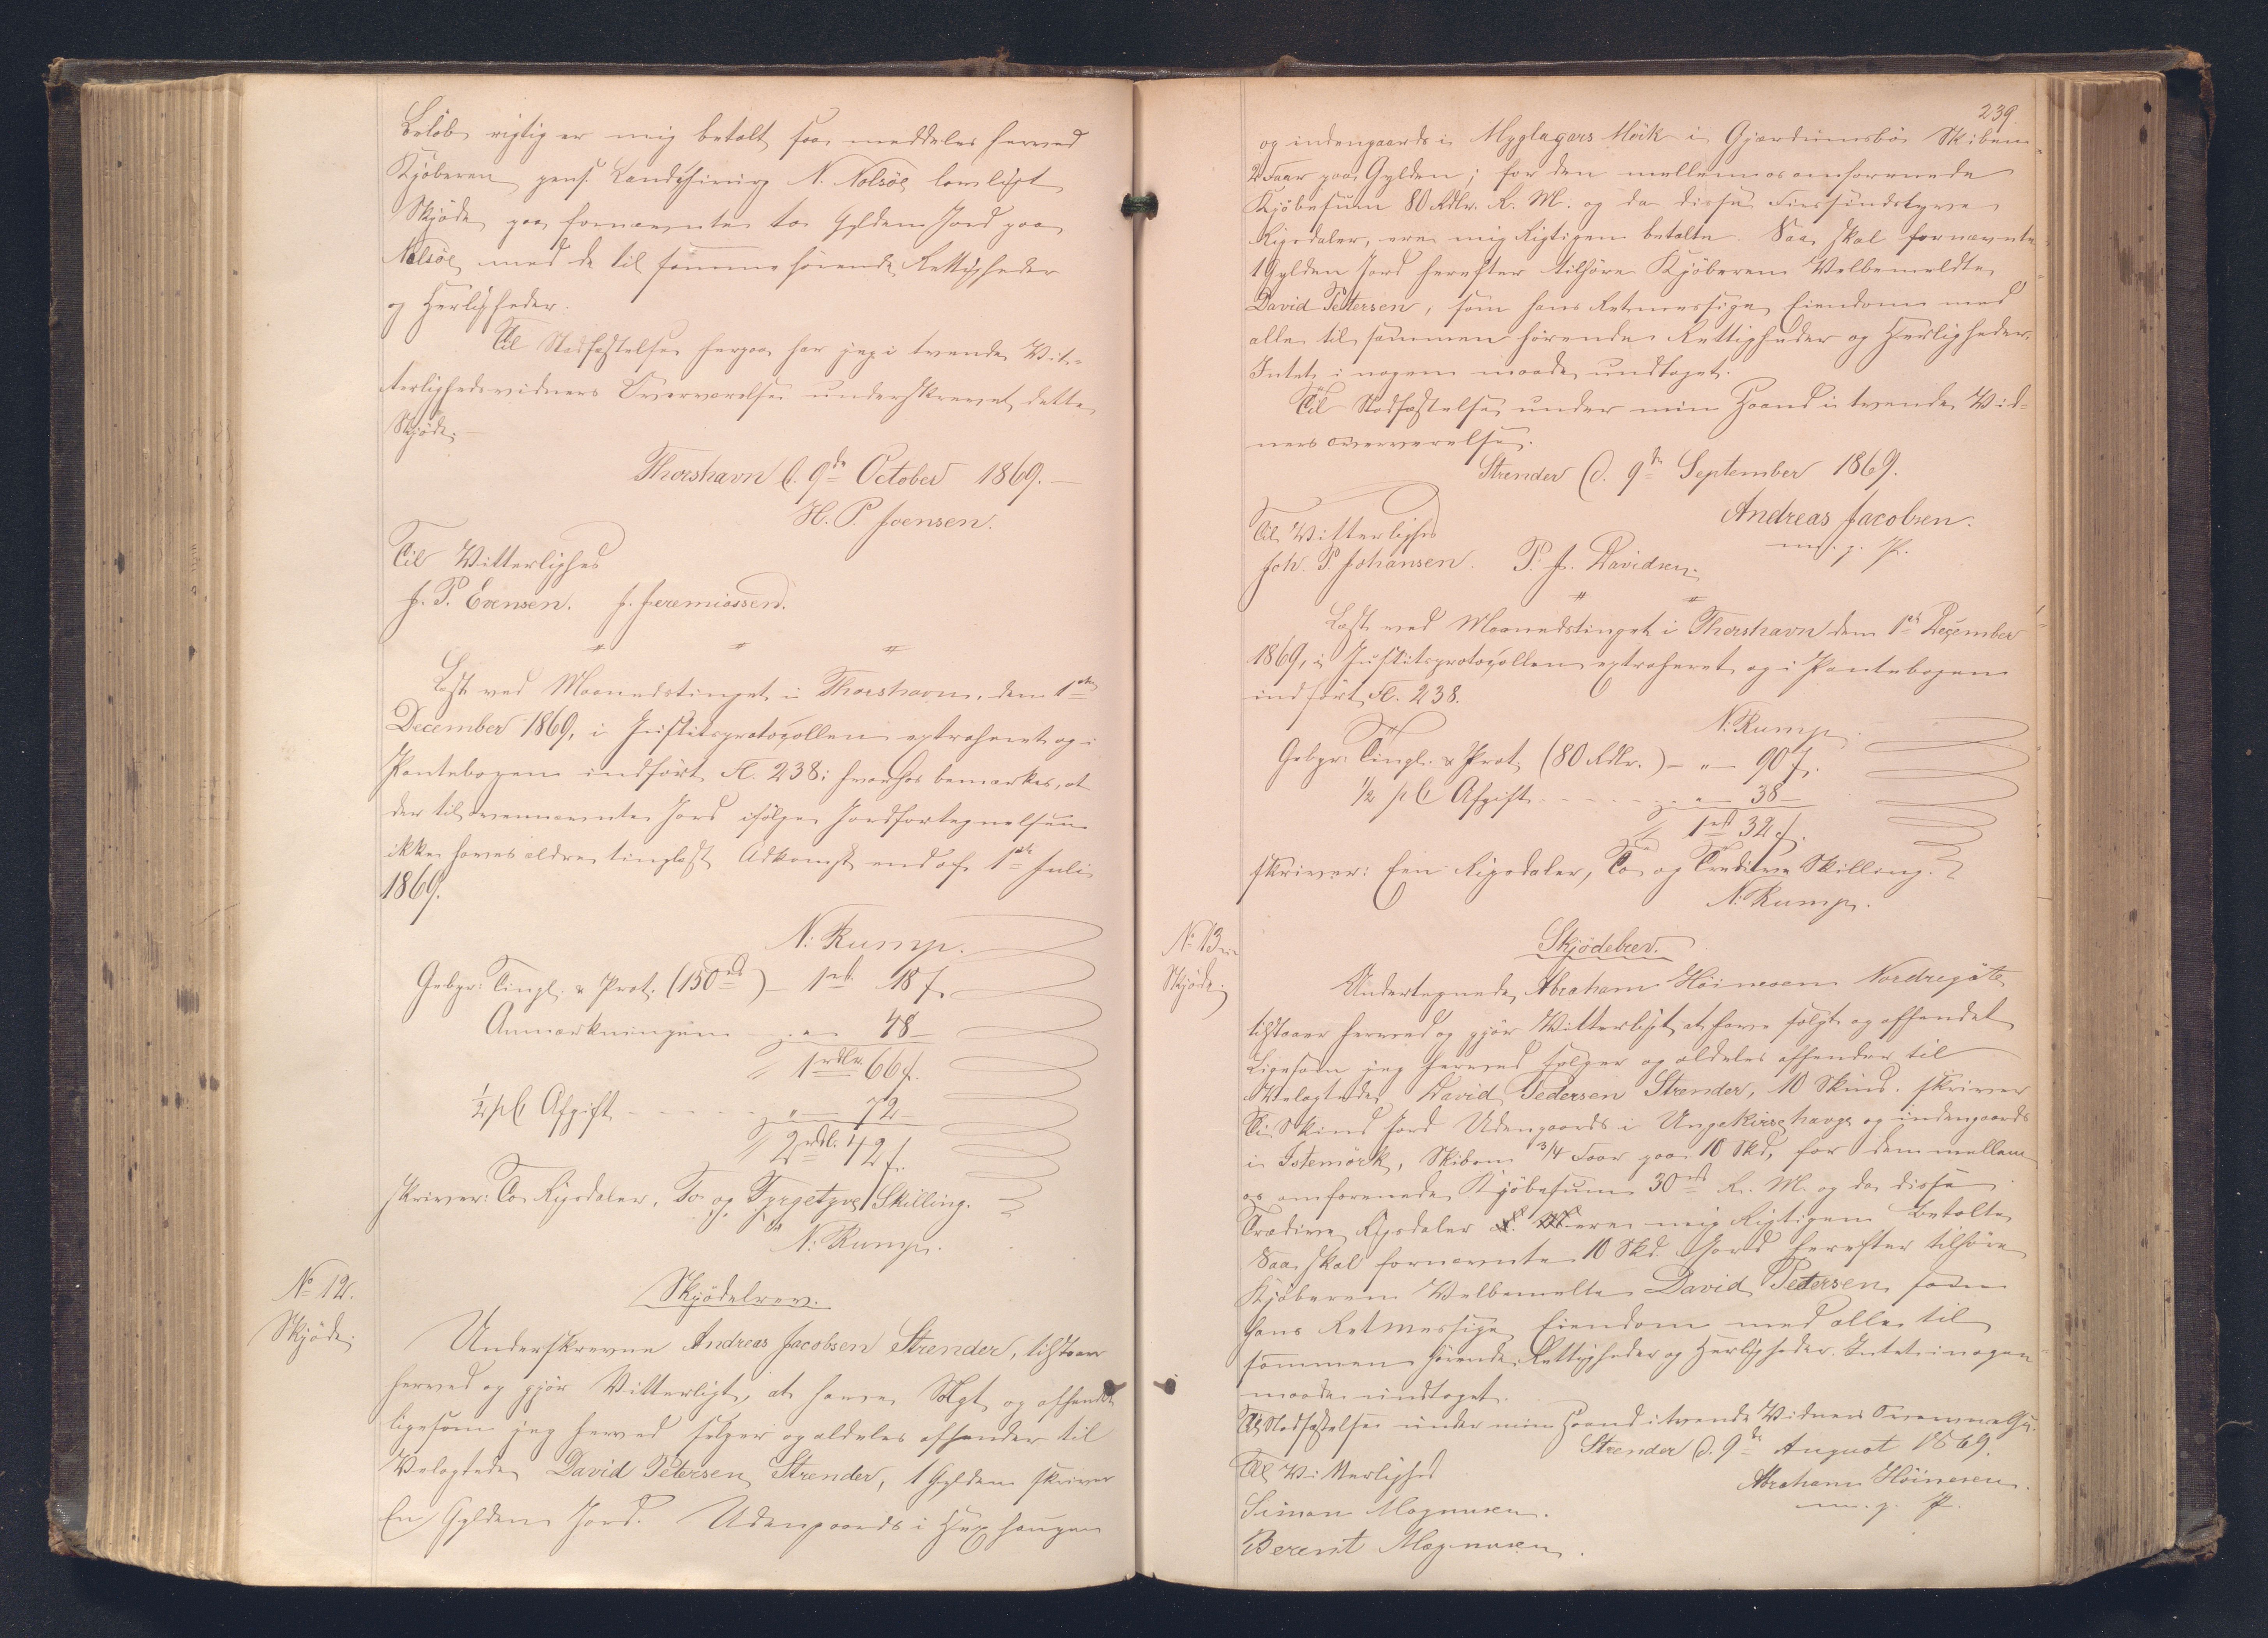 Beløb rigtig er mig betalt, saa meddeles herved
Kjøberen pens. Landchirurg N. Nolsöe lovligt
Skjöde paa fornævnte to Gylden Jord paa
Nolsöe, med de til samme hörende Rettigheder
og Herligheder.
Til Stadfæstelse herpaa har jeg i tvende Vit-
terlighedsvidners Overværelse underskrevet dette
Skjöde.
Thorshavn d. 9de October 1869.
H. P. Joensen.
Til Vitterlighed
J. P. Evensen. J. Jeremiassen.
Læst ved Maanedstinget i Thorshavn, den 1ste
December 1869, i Justitsprotocollen extraheret og i
Pantebogen indfört Fl. 238; hvorhos bemærkes, at
der til ovennævnte Jord ifölge Jordfortegnelsen
ikke haves ældre tinglæst Adkomst end af 1ste Juli
1869.
N. Rump.
Gebyr: Tingl. & Prot. (150rd) - 1rd. 18 s.
Anmærkningen - " - 48 -
1rdlr. 66 s.
½ pC Afgift - " - 72 -
2rdl. 42 s.
skriver: To Rigsdaler, To og Fyrgetyve Skilling.
N. Rump.
No 12.
Skjöde.
Skjödebrev.
Underskrevne Andreas Jacobsen Strender, tilstaaer
herved og gjör Vitterligt, at have Solgt og afhendet
ligesom jeg herved sælger og aldeles afhender til
Velagtede David Petersen Strender, 1 Gylden skriver
En Gylden Jord. Udengaards i haugen
239.
og indengaards i Myglagars Mörk i Gjærdumsbö Skiben
2 Faar paa Gylden; for den mellem os omforenede
Kjöbesum 80 Rdlr. R. M. og da disse Firsindstyve
Rigsdaler, ere mig Rigtigen betalte. Saa skal fornævnte
1 Gylden Jord herefter tilhöre Kjöberen Velbemeldte
David Petersen, som hans Retmessige Eiendom med
alle til sammen hörende Rettigheder og Herligheder,
Intet i nogen maade undtaget.
Til Stadfæstelse under min Haand i tvende Vid-
ners overværelse.
Strender d. 9de September 1869.
Andreas Jacobsen.
m. f. P.
Til Vitterlighed
Joh. P. Johansen. P. J. Davidsen.
Læst ved Maanedstinget i Thorshavn den 1ste December
1869, i Justitsprotocollen extraheret og i Pantebogen
indfört Fl. 238.
N. Rump.
Gebyr: Tingl. & Prot. (80 Rdlr.) - " - 90 s.
½ pC Afgift - " - 38 -
1rd 32 s.
skriver: Een Rigsdaler, To og Tredive Skilling.
N. Rump.
No 13
Skjöde.
Skjödebrev.
Undertegnede Abraham Höinesen Nordregöte
tilstaaer herved og gjör Vitterligt, at have solgt og afhendet
Ligesom jeg herved sælger og aldeles afhender til
Velagtede David Pedersen Strender, 10 Skind. skriver
Ti Skind Jord Udengaards i Ungekirschauge og indengaards
i Istemörk, Skiben 3/4 Faar paa 10 Skd, for den mellem
os omforenede Kjöbesum 30rd R. M. og da disse
Trædive Rigsdaler ere mig Rigtigen betalte
Saa skal fornævnte 10 Skd. Jord herefter tilhöre
Kjöberen Velbemelte David Petersen som
hans Retmessige Eiendom med alle til
sammen hörende Rettigheder og Herligheder. Intet i nogen
maade undtaget.
Til Stadfæstelse under min Haand i tvende Vidners Overværelse.
Strender d. 9de August 1869.
Til Vitterlighed
Abraham Höinesen.
m. f. P.
Simon Magnusen.
Berent Magnusen.